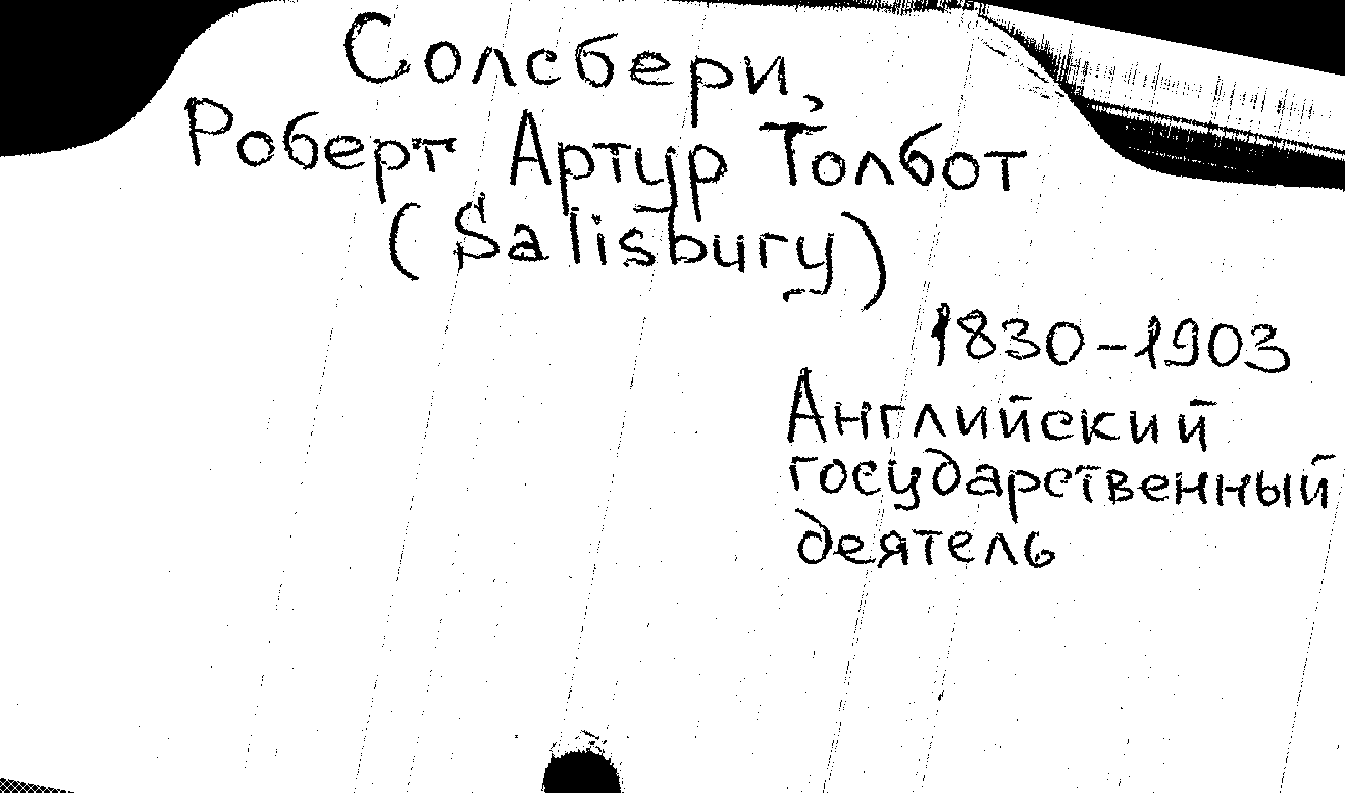 Солсбери,
Роберт Артур Толбот
(Salisbury)
1830-1903
Английский
государственный
деятель